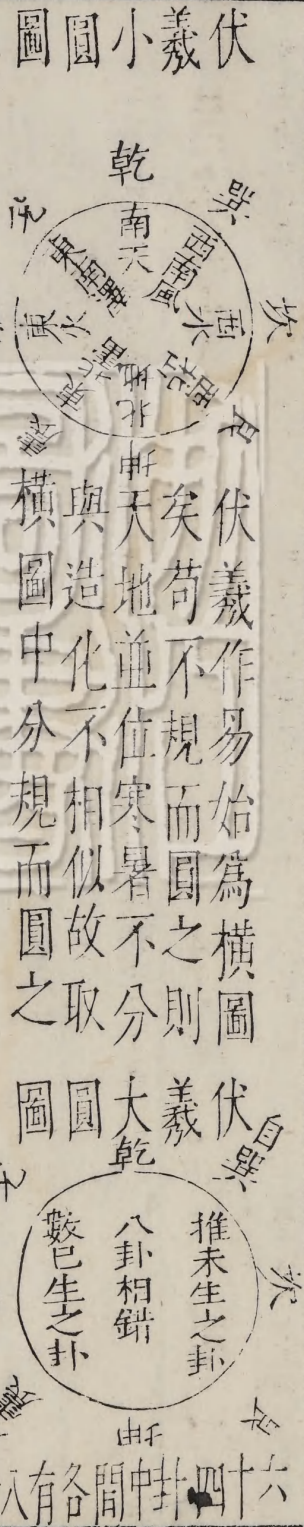 伏羲小圓圖
乾
巽
坎
艮
坤
南天
西南風
西水
西北山
北地
東北雷
東火
東南澤
伏羲作易始爲橫圖
矣苟不規而圓之則
天地並位寒暑不分
與造化不相似故取
橫圖中分規而圓之
伏羲大圓圖
乾
自巽
坎
艮
坤
推未生之卦
八卦相錯
數已生之卦
六十四卦中間各有八